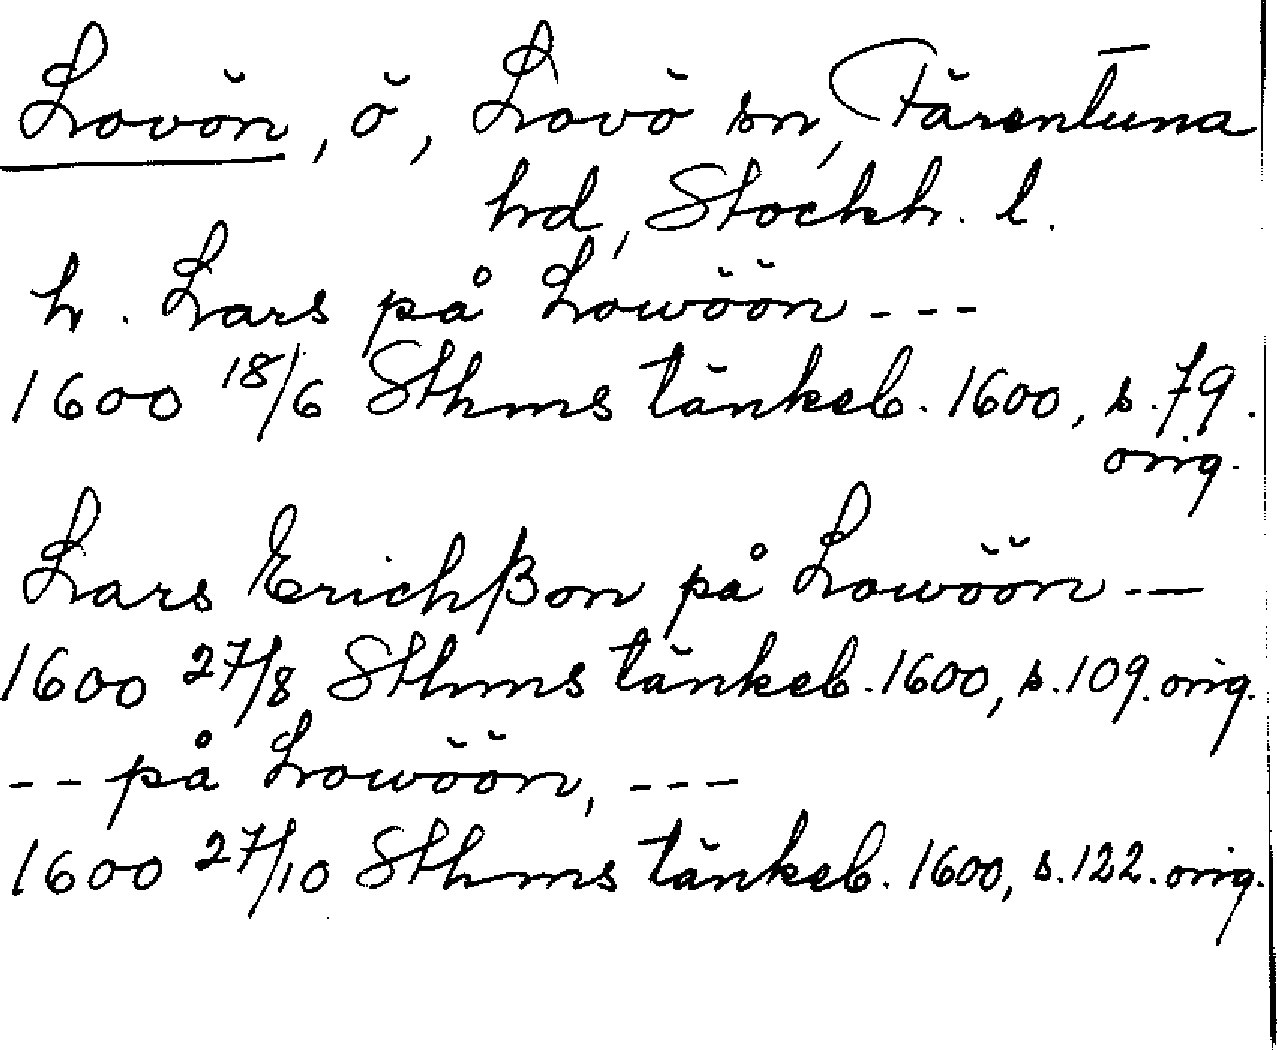 Lovön, ö, Lovö sn, Färentuna
hd, Stockh. l.
h. Lars på Lowöön - - -
1600 18/6 Sthms tänkeb. 1600, s. 79.
orig.
Lars Erichßon på Lowöön - —
1600 27/8 Sthms tänkeb. 1600, s. 109. orig.
- - på Lowöön, - - -
1600 27/10 Sthms tänkeb. 1600, s. 122. orig.